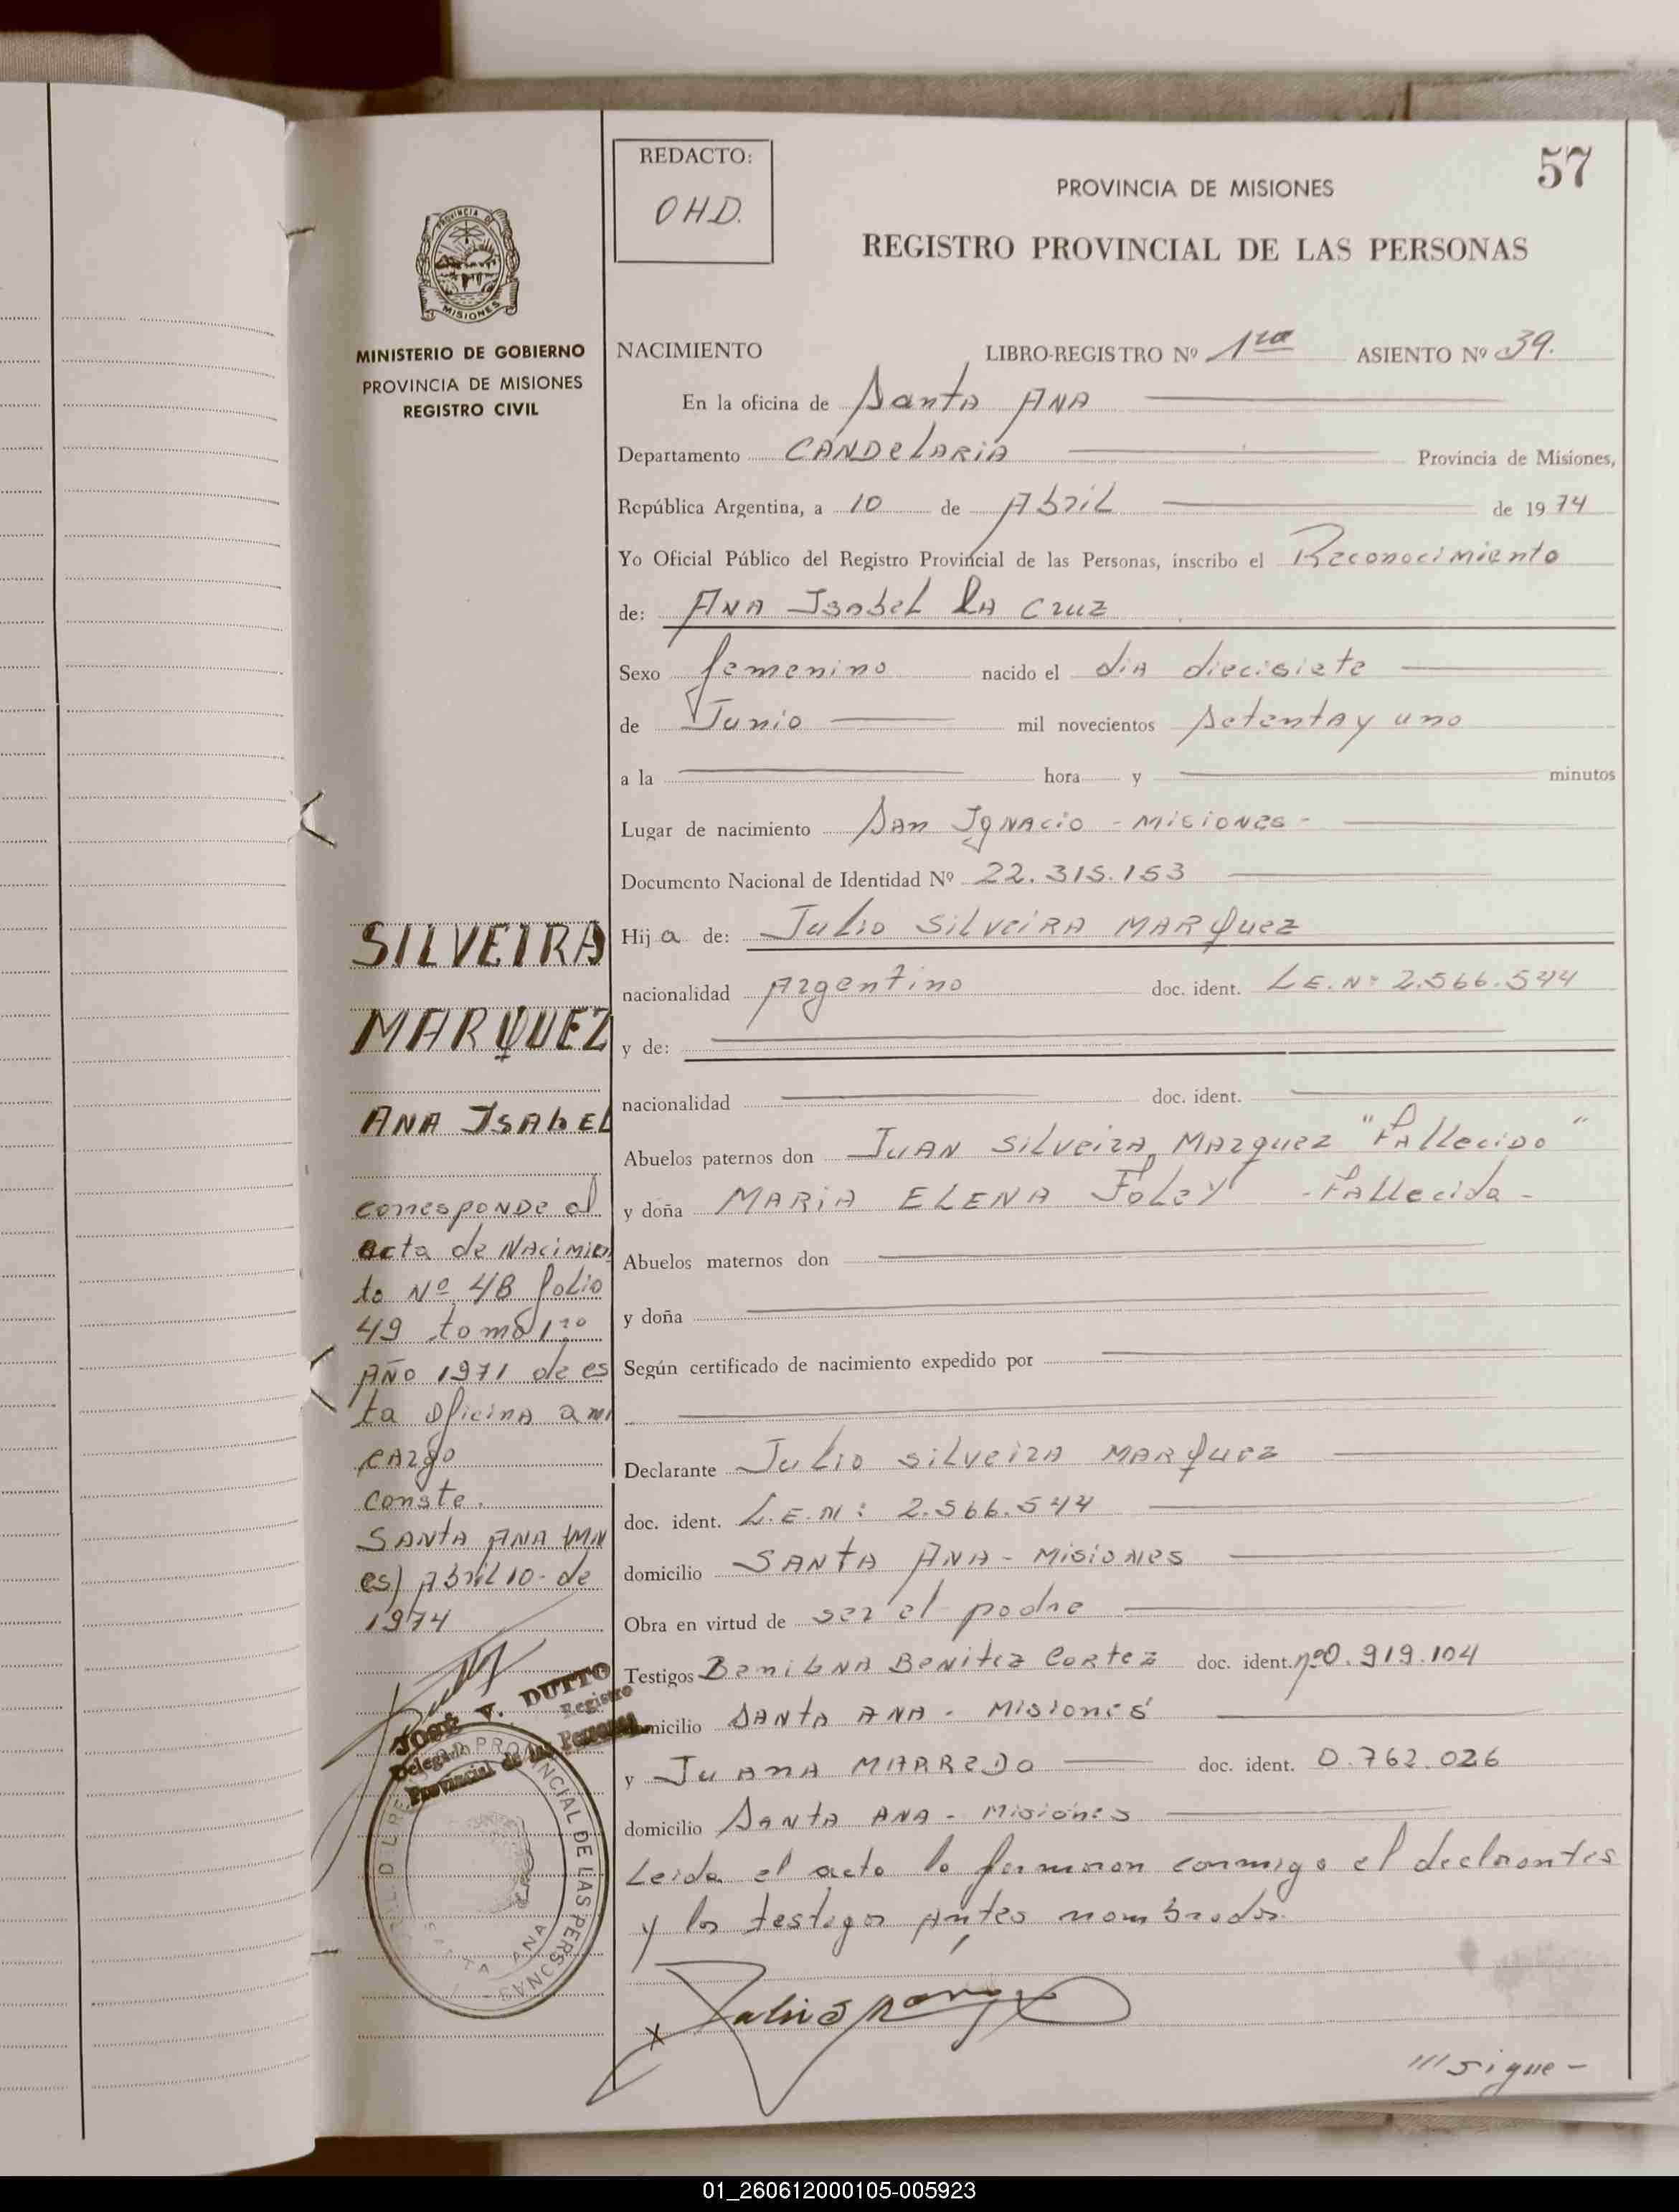 REDACTO:
OHD.
57
PROVINCIA DE MISIONES
REGISTRO PROVINCIAL DE LAS PERSONAS
PROVINCIA DE
MISIONES
MINISTERIO DE GOBIERNO
PROVINCIA DE MISIONES
REGISTRO CIVIL
NACIMIENTO LIBRO-REGISTRO Nº 1ro ASIENTO Nº 39.
En la oficina de Santa ANA
Departamento CANDELARIA Provincia de Misiones,
República Argentina, a 10 de Abril de 1974
Yo Oficial Público del Registro Provincial de las Personas, inscribo el Reconocimiento
de: ANA Isabel LA CRUZ
Sexo femenino nacido el dia diecisiete
de Junio mil novecientos setenta y uno
a la hora y minutos
Lugar de nacimiento San Ignacio - Misiones -
Documento Nacional de Identidad Nº 22.315.153
Hija de: Julio Silveira MARquez
nacionalidad Argentino doc. ident. L.E.Nº 2.566.544
y de:
nacionalidad doc. ident.
Abuelos paternos don JUAN Silveira Marquez "Fallecido"
y doña MARIA ELENA Foley -Fallecida-
Abuelos maternos don
y doña
Según certificado de nacimiento expedido por
Declarante Julio Silveira MARquez
doc. ident. L.E.N: 2.566.544
domicilio SANTA ANA - Misiones
Obra en virtud de ser el padre
Testigos Benigna Benitez Cortez doc. ident. nº0.919.104
domicilio SANTA ANA - Misiones
y Juana MARREDO doc. ident. 0.762.026
domicilio SANTA ANA - Misiones
Leida el acta la firmaron conmigo el declarantes
y los testigos Antes nombrados.
///sigue-
SILVEIRA
MARQUEZ
ANA ISABEL
corresponde al
acta de Nacimien
to Nº 48 folio
49 tomo 1ro
AÑO 1971 de es
ta oficina a mi
cargo
conste.
SANTA ANA (Mn
es) Abril 10- de
1974
JOSE V. DUTTO
Delegado Registro
Provincial de las Personas
PROVINCIAL DE LAS PERSONAS
SANTA ANA
01_260612000105-005923